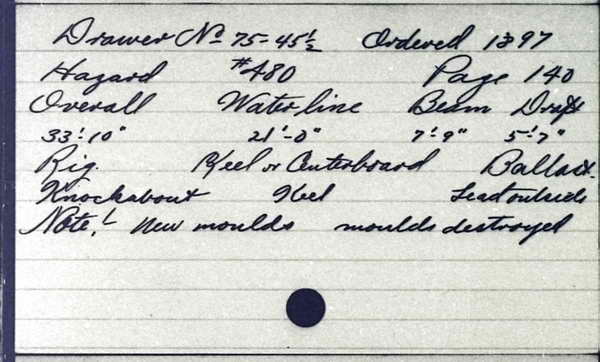 Drawer No 75-45½ Ordered 1897
Hazard #480 Page 140
Overall Waterline Beam Draft
33'-10" 21'-0" 7'-9" 5'-7"
Rig. Keel or Centerboard Ballast.
Knockabout Keel Lead outside
Note! New moulds moulds destroyed